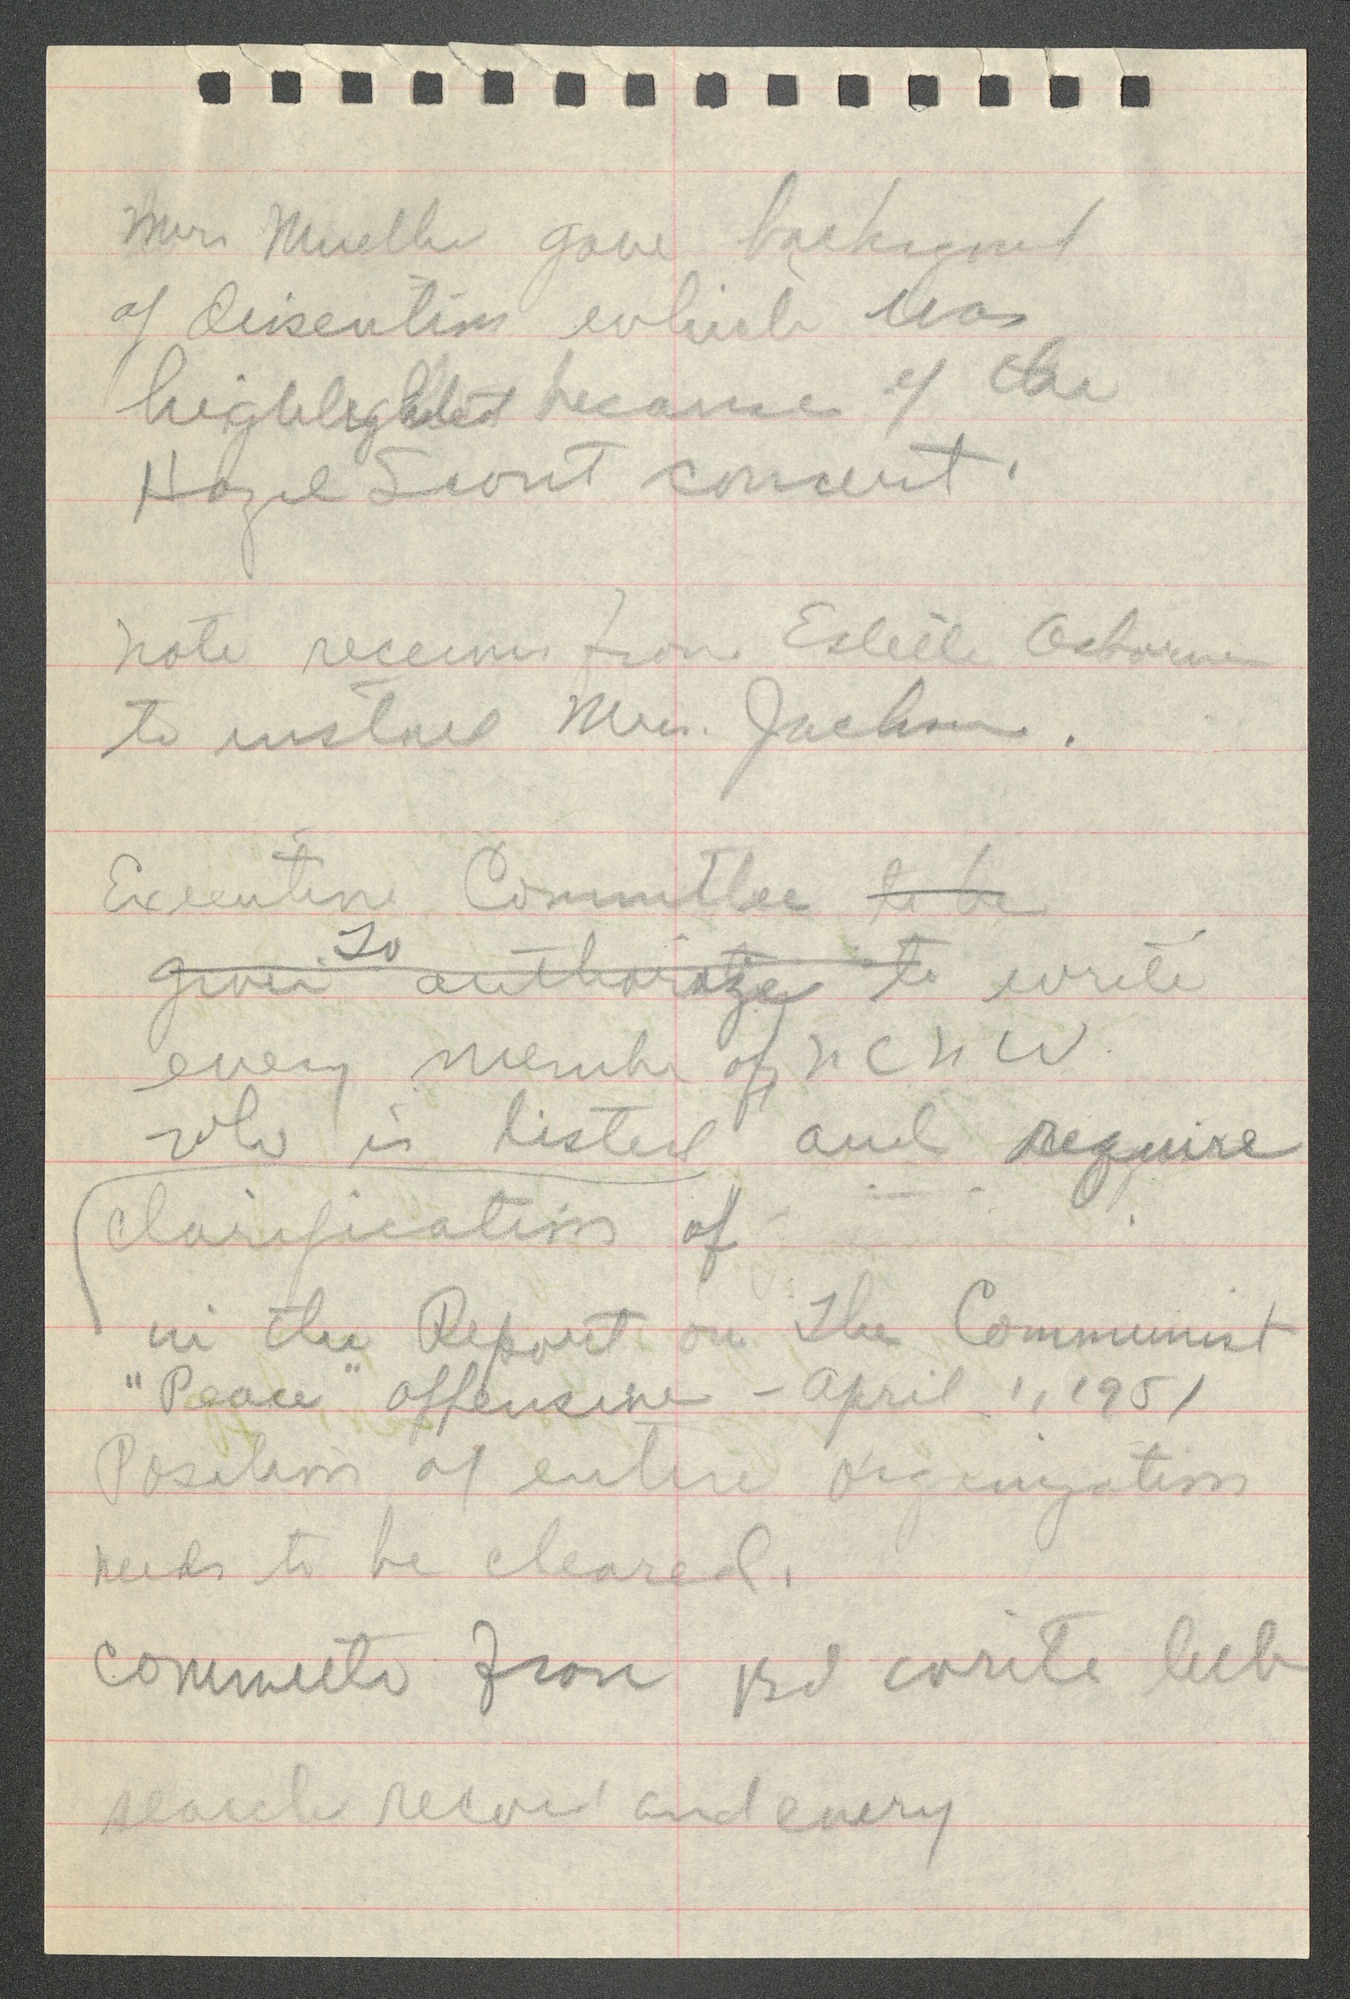 Mrs Muelle gave backgroud
of disention which was
highlighted because of the
Hazel Scott concert.
Note received from Estelle Osborne
to instael Mrs. Jackson.
Executive Committee to be
given To authorize to write
every membe of NCNW
who is listed and require
clarification of
in the Report on The Communist
"Peace" offensive - April 1, 1951
Position of entire organization
needs to be cleared.
Committe from Bd write
search record and every